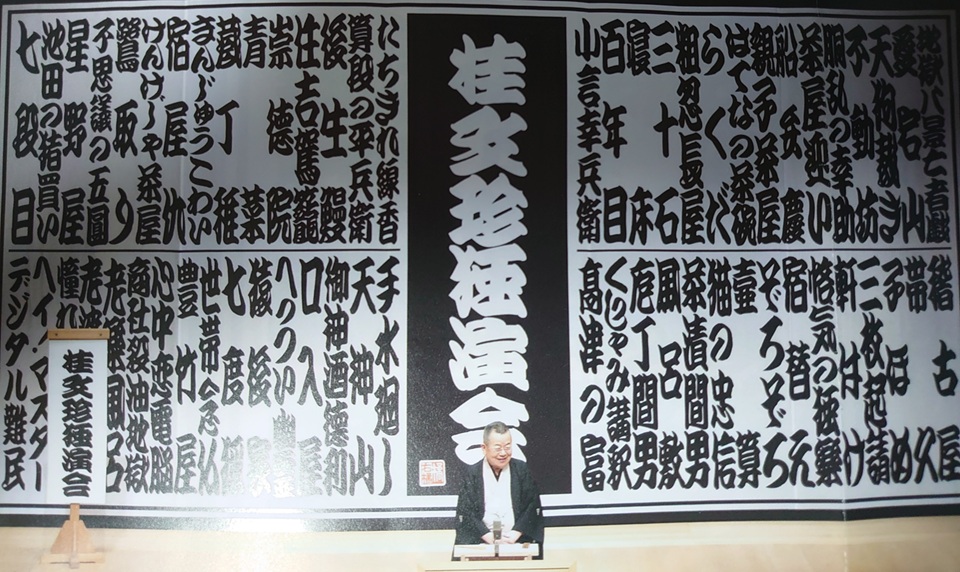 地獄八景亡者戯
愛宕山
天狗裁き
不動坊
胴乱の幸助
茶屋迎い
船弁慶
親子茶屋
はてなの茶碗
らくだ
粗忽長屋
三十石
寝床
百年目
小言幸兵衛
稽古屋
帯久
子ほめ
三枚起請
軒付け
悋気の独楽
宿替え
ぞろぞろ
壺算
猫の忠信
茶漬間男
風呂敷
庖丁間男
くしゃみ講釈
高津の富
桂文珍独演会
たちぎれ線香
算段の平兵衛
後生鰻
住吉駕籠
崇徳院
青菜
蔵丁稚
まんじゅうこわい
宿屋仇
けんげしゃ茶屋
鷺取り
不思議の五圓
星野屋
池田の猪買い
七段目
手水廻し
天神山
御神酒徳利
口入屋
へっつい幽霊
猿後家
七度狐
世帯念仏
豊竹屋
心中恋電脳
商社殺油地獄
老楽風呂
老婆
憧れ
ヘイ・マスター
デジタル難民
桂文珍独演会